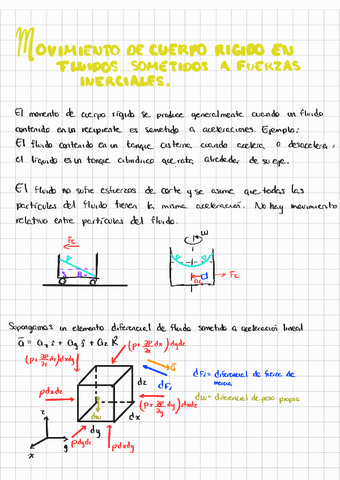 MOVIMIENTO DE CUERPO RIGIDO EN
FLUIDOS SOMETIDOS A FUERZAS
INERCIALES.
El momento de cuerpo rígido se produce generalmente cuando un fluido
contenido en un recipiente es sometido a aceleraciones. Ejemplo:
El fluido contenido en un tanque cisterna cuando acelera o desacelera,
el líquido es un tanque cilíndrico que rota alrededor de su eje.
El fluido no sufre esfuerzos de corte y se asume que todas las
partículas del fluido tienen la misma aceleración. No hay movimiento
relativo entre partículas del fluido.
Fc
W
Fc
Supongamos un elemento diferencial de fluido sometido a aceleración lineal
a = ax i + ay j + az k
(p + ∂p/∂x dx) dydz
(p + ∂p/∂z dz) dxdy
a
dFi
dFi = diferencial de fuerza de
inercia
dz
pdxdz
dw
dw = diferencial de peso propio
(p + ∂p/∂y dy) dxdz
dx
dy
z
y
x
pdydz
pdxdy